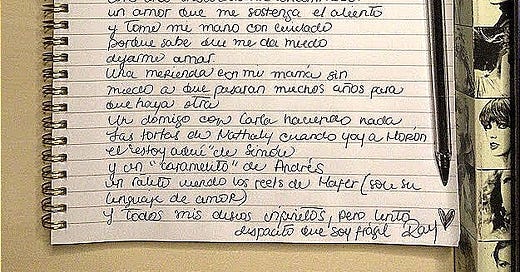 un amor que me sostenga el aliento
y tome mi mano con cuidado
porque sabe que me da miedo
dejarme amar
Una merienda con mi mamá sin
miedo a que pasaran muchos años para
que haya otra
Un domigo con Carla haciendo nada
Las tortas de Nathaly cuando voy a Morón
el "estoy aquí" de Simón
y un "caramelito" de Andrés
un ratito viendo los reels de Mafer (son su
lenguaje de amor)
y todos mis deseos infinitos, pero lento
despacito que soy frágil Day